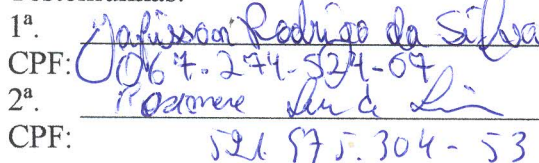 1ª. Jafisson Rodrigo da Silva
CPF: 067.274.524-07
2ª.
CPF: 521.575.304-53